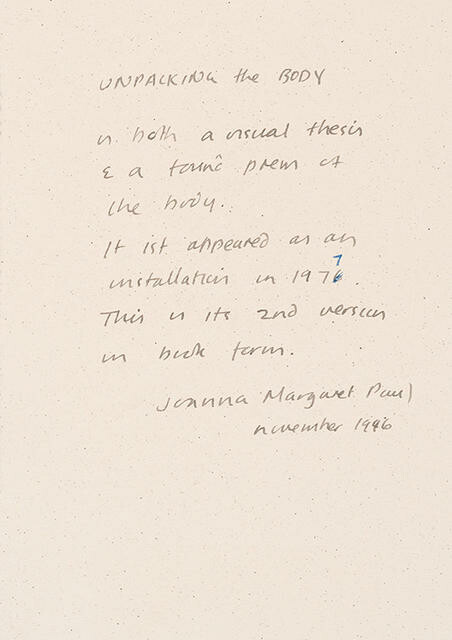 UNPACKING the BODY
is both a visual thesis
& a found poem of
the body.
It 1st appeared as an
installation in 1977.
This is its 2nd version
in book form.
Joanna Margaret Paul
november 1996